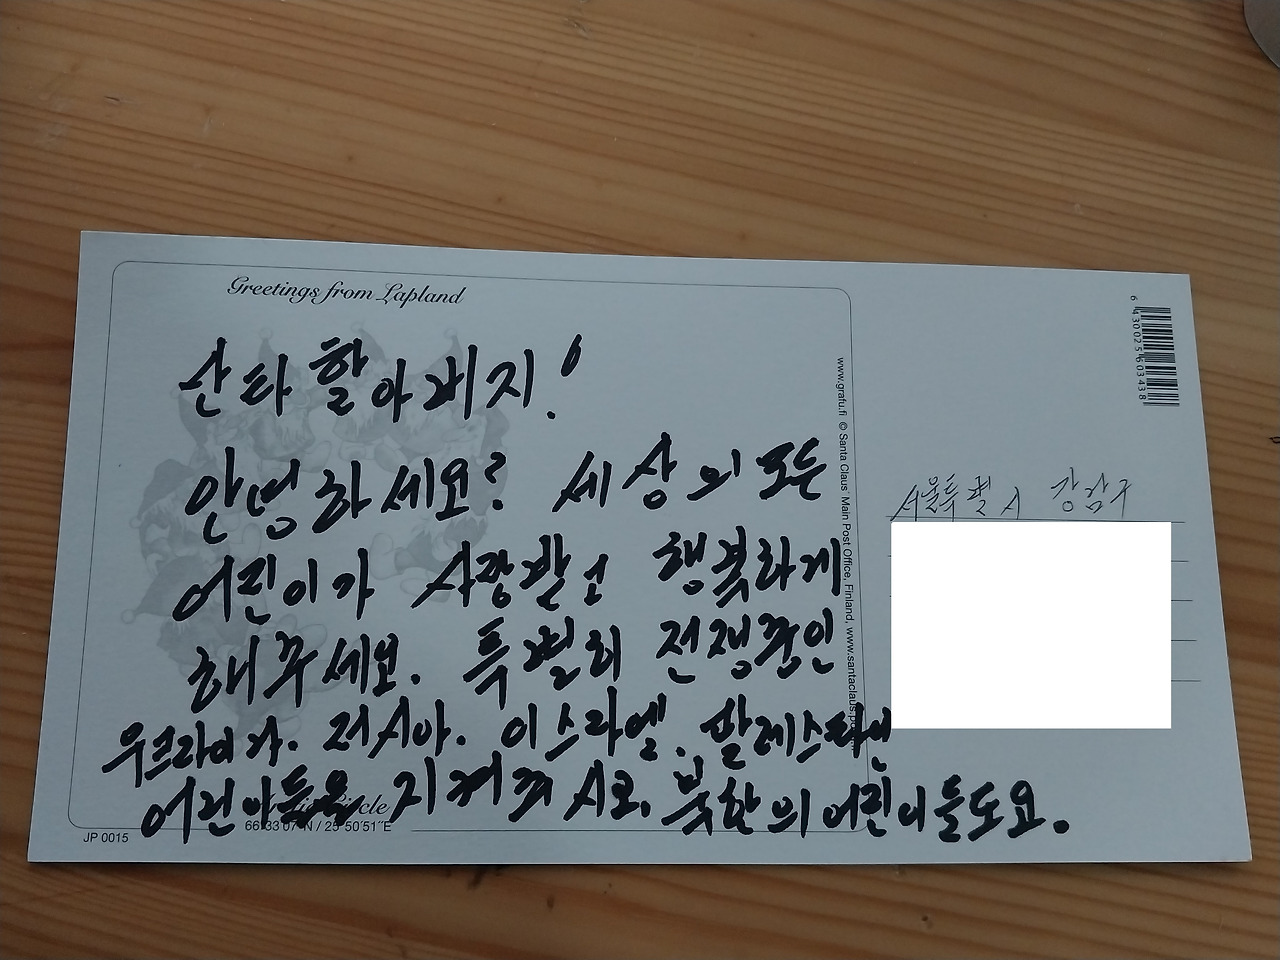 Greetings from Lapland
산타 할아버지!
안녕하세요? 세상의 모든
어린이가 사랑받고 행복하게
해주세요. 특별히 전쟁중인
우크라이나. 러시아. 이스라엘. 팔레스타인
어린이들을 지켜주시고, 북한의 어린이들도요.
Circle
66°33'07"N / 25°50'51"E
JP 0015
www.grafu.fi © Santa Claus' Main Post Office, Finland, www.santaclaus.po
6 430025 603438
서울특별시 강남구